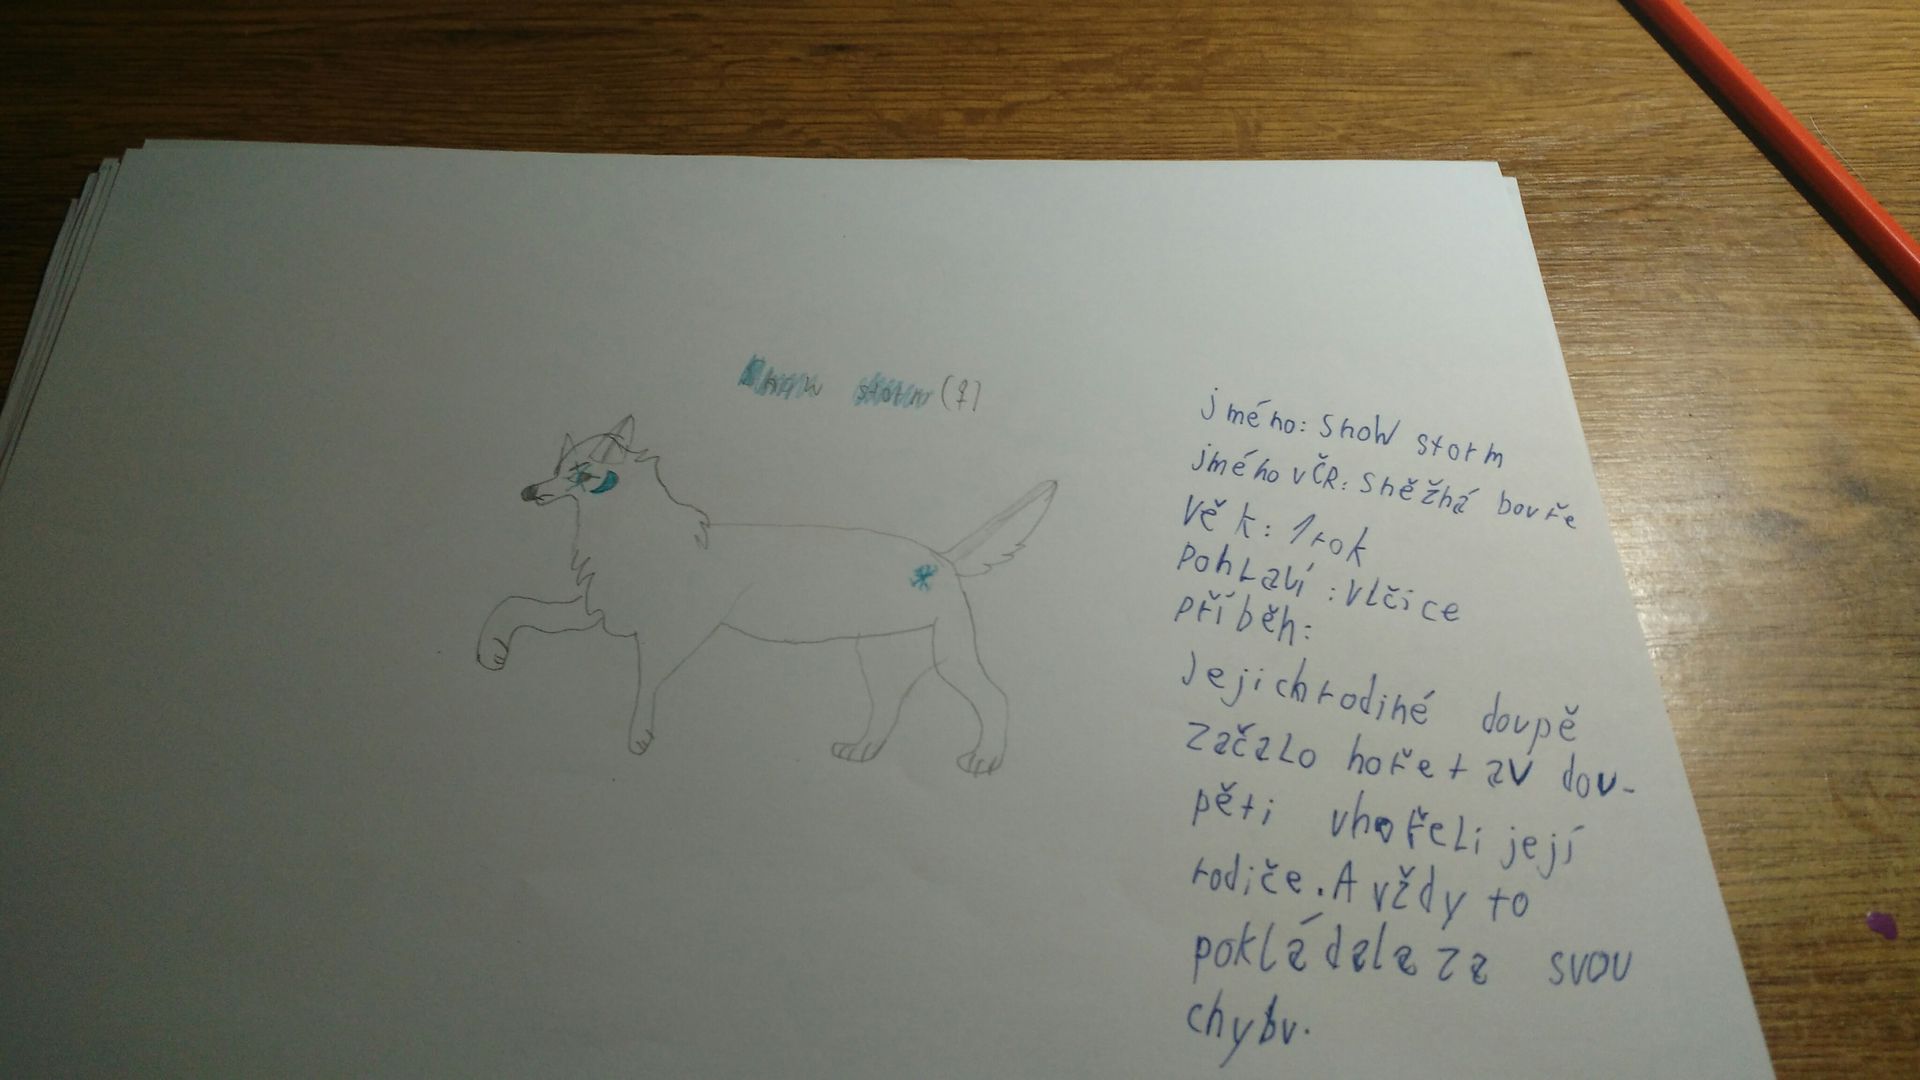 Snow storm (♀)
jméno: Snow storm
jméno v ČR: Sněžná bouře
Věk: 1 rok
Pohlaví: vlčice
Příběh:
Jejich rodiné doupě
začalo hořet a v dou-
pěti uhořeli její
rodiče. A vždy to
pokládala za svou
chybu.